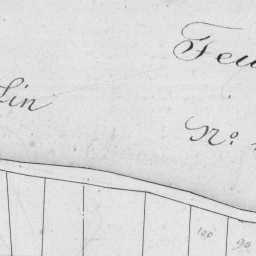 Feu
lin
N.º
100
90